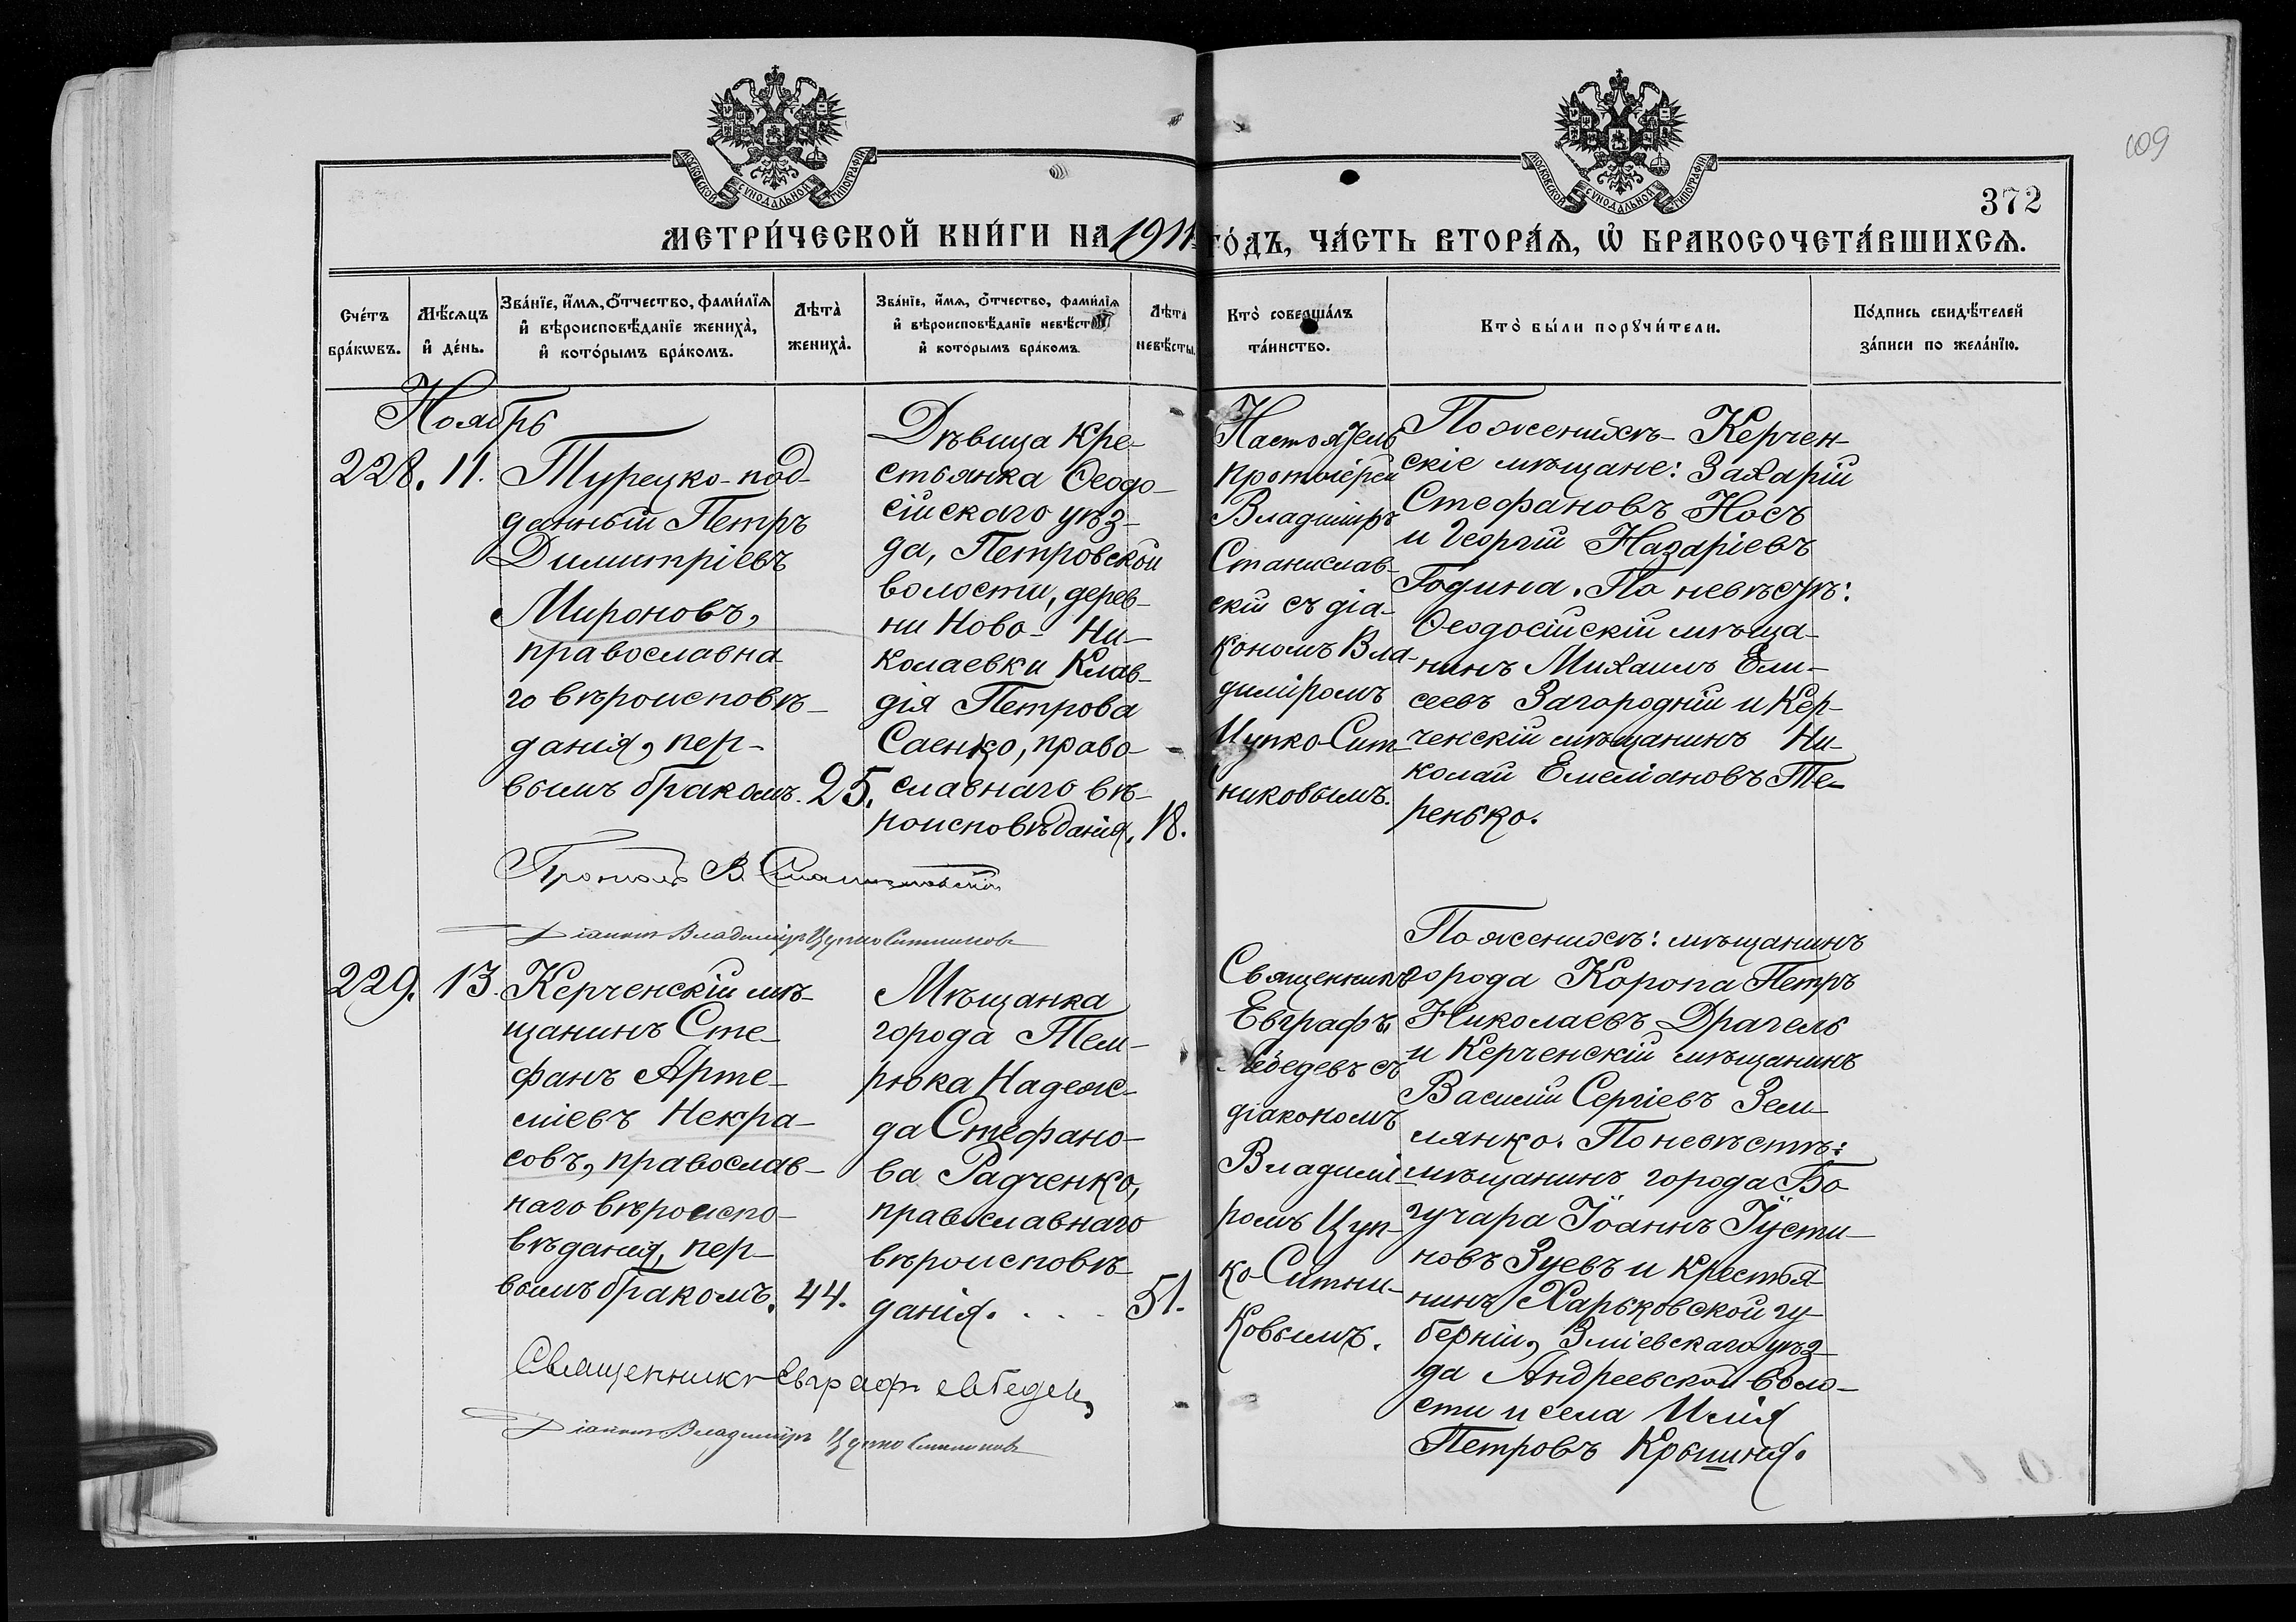 109
МОСКОВСКОЙ СѴНОДАЛЬНОЙ ТИПОГРАФІИ
МОСКОВСКОЙ СѴНОДАЛЬНОЙ ТИПОГРАФІИ
372
МЕТРИ́ЧЕСКОЙ КНИ́ГИ НА 1911 ГО́ДЪ, ЧА́СТЬ ВТОРА́Ѧ, Ѽ БРАКОСОЧЕТА́ВШИХСѦ.
Сче́тъ
бра́кѡвъ.
Мѣ́сѧцъ
и҆ де́нь.
Зва́нїе, и҆́мѧ, ѻ҆́тчество, фами́лїѧ
и҆ вѣроисповѣ́данїе жениха̀,
и҆ кото́рымъ бра́комъ.
Лѣта̀
жениха̀.
Зва́нїе, и҆́мѧ, ѻ҆́тчество, фами́лїѧ
и҆ вѣроисповѣ́данїе невѣ́сты
и҆ кото́рымъ бра́комъ
Лѣта
невѣ́сты.
Кто̀ соверша́лъ
та́инство.
Кто̀ бы́ли порꙋчи́тели.
По́дпись свидѣ́телей
за́писи по жела́нїю.
Ноябрь
228. 11.
Турецко-под-
данный Петръ
Димитріевъ
Мироновъ,
православна
го вѣроисповѣ-
данія, пер-
вымъ бракомъ. 25.
Дѣвица кре-
стьянка Ѳеодо-
сійскаго уѣз-
да, Петровской
волости, дерев-
ни Ново-Ни-
колаевки Клав-
дія Петрова
Саенко, право-
славнаго вѣ-
роисповѣданія. 18.
Настоятель
протоіерей
Владиміръ
Станислав-
скій съ діа-
кономъ Вла-
диміромъ
Цупко-Сит-
никовымъ.
По женихѣ- Керчен-
скіе мѣщане: Захарій
Стефановъ Носъ
и Георгій Назаріевъ
Година. По невѣстѣ:
Ѳеодосійскій мѣща-
нинъ Михаилъ Ели-
сеевъ Загородній и Кер-
ченскій мѣщанинъ Ни-
колай Емеліановъ Те-
ренько.
Протоіерей В. Станиславскій
Діаконъ Владиміръ Цупко Ситниковъ
229. 13.
Керченскій мѣ-
щанинъ Сте-
фанъ Арте-
міевъ Некра-
совъ, православ-
наго вѣроиспо-
вѣданія, пер-
вымъ бракомъ. 44.
Мѣщанка
города Тем-
рюка Надеж-
да Стефано-
ва Радченко,
православнаго
вѣроисповѣ-
данія. . . . 51.
Священникъ
Евграфъ
Лебедевъ съ
діакономъ
Владимі-
ромъ Цуп-
ко-Ситни-
ковымъ.
По женихѣ: мѣщанинъ
города Коропа Петръ
Николаевъ Драгель
и Керченскій мѣщанинъ
Василій Сергіевъ Зем-
лянко. По невѣстѣ:
мѣщанинъ города Бо
гучара Іоаннъ Іусти-
новъ Зуевъ и крестья
нинъ Харьковской гу-
берніи, Зміевскаго уѣз-
да Андреевской воло-
сти и села Илія
Петровъ Крышня.
Священникъ Евграфъ Лебедевъ
Діаконъ Владиміръ Цупко Ситниковъ